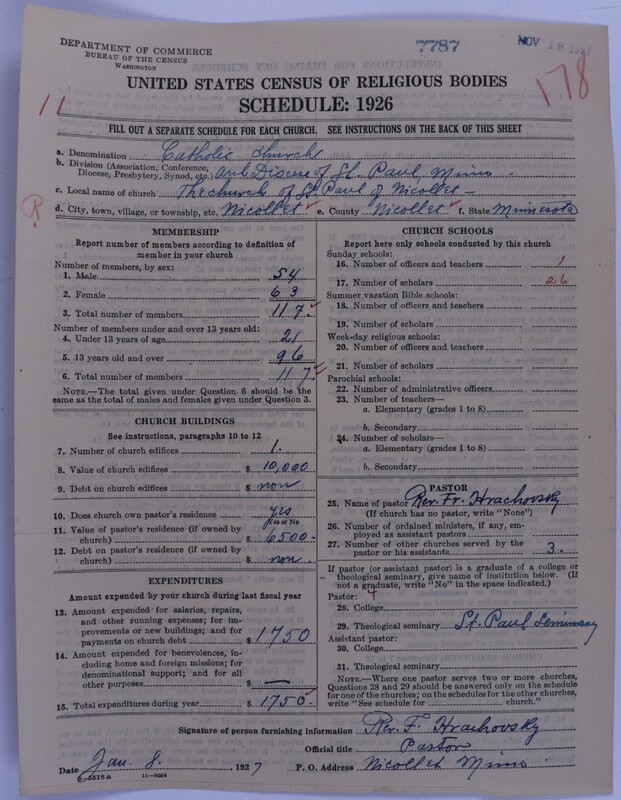 7787
NOV 18 192
DEPARTMENT OF COMMERCE
BUREAU OF THE CENSUS
WASHINGTON
178
UNITED STATES CENSUS OF RELIGIOUS BODIES
11
SCHEDULE: 1926
FILL OUT A SEPARATE SCHEDULE FOR EACH CHURCH. SEE INSTRUCTIONS ON THE BACK OF THIS SHEET
a. Denomination Catholic church
b. Division (Association, Conference, Diocese, Presbytery, Synod, etc.) Arch Diocese of St. Paul, Minn
c. Local name of church The church of St. Paul of Nicollet
R
d. City, town, village, or township, etc. Nicollet e. County Nicollet f. State Minnesota
MEMBERSHIP
Report number of members according to definition of member in your church
Number of members, by sex:
1. Male 54
2. Female 63
3. Total number of members 117
Number of members under and over 13 years old:
4. Under 13 years of age 21
5. 13 years old and over 96
6. Total number of members 117
NOTE.—The total given under Question 6 should be the same as the total of males and females given under Question 3.
CHURCH BUILDINGS
See instructions, paragraphs 10 to 12
7. Number of church edifices 1.
8. Value of church edifices $ 10,000
9. Debt on church edifices $ non
10. Does church own pastor's residence? yes
Yes or No
11. Value of pastor's residence (if owned by church) $ 6500-
12. Debt on pastor's residence (if owned by church) $ non
EXPENDITURES
Amount expended by your church during last fiscal year
13. Amount expended for salaries, repairs, and other running expenses; for improvements or new buildings; and for payments on church debt $ 1750
14. Amount expended for benevolences, including home and foreign missions; for denominational support; and for all other purposes $ —
15. Total expenditures during year $ 1750
CHURCH SCHOOLS
Report here only schools conducted by this church
Sunday schools:
16. Number of officers and teachers 1
17. Number of scholars 26
Summer vacation Bible schools:
18. Number of officers and teachers
19. Number of scholars
Week-day religious schools:
20. Number of officers and teachers
21. Number of scholars
Parochial schools:
22. Number of administrative officers
23. Number of teachers—
a. Elementary (grades 1 to 8)
b. Secondary
24. Number of scholars—
a. Elementary (grades 1 to 8)
b. Secondary
PASTOR
25. Name of pastor Rev. Fr. Hrachovsky
(If church has no pastor, write "None")
26. Number of ordained ministers, if any, employed as assistant pastors
27. Number of other churches served by the pastor or his assistants 3.
If pastor (or assistant pastor) is a graduate of a college or theological seminary, give name of institution below. (If not a graduate, write "No" in the space indicated.)
Pastor: 4
28. College
29. Theological seminary St. Paul Seminary
Assistant pastor:
30. College
31. Theological seminary
NOTE.—Where one pastor serves two or more churches, Questions 28 and 29 should be answered only on the schedule for one of the churches; on the schedules for the other churches, write "See schedule for church."
Signature of person furnishing information Rev. F. Hrachovsky
Official title Pastor
Date Jan. 8. 1927 P. O. Address Nicollet Minn
11—9064